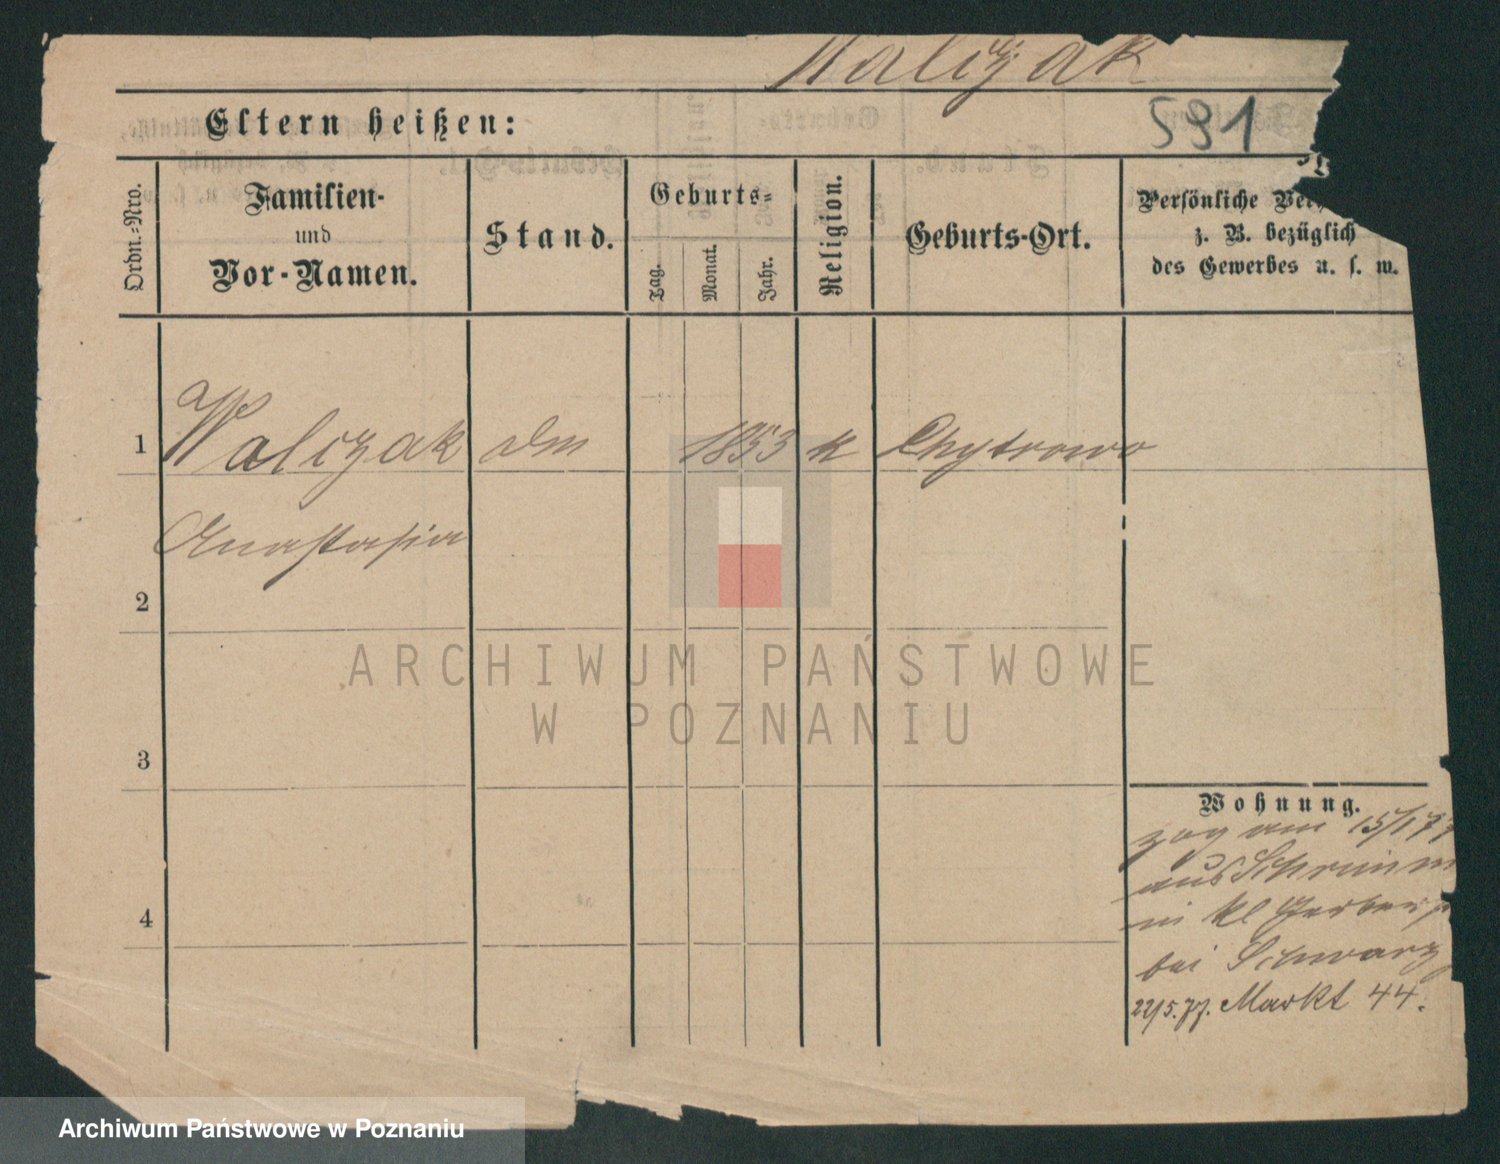 Walczak
Eltern heißen:
591
Ordn.-Nro.
Familien-
und
Vor-Namen.
Stand.
Geburts-
Tag.
Monat.
Jahr.
Religion.
Geburts-Ort.
Persönliche
z. B. bezüglich
des Gewerbes u. s. w.
1 Walczak 1853 k Chytrowo
Anastasia
2
3
4
Wohnung.
zog am 15/1 77
aus Schrimm
in kl Gerberstr
bei Schwarz
22/5. 77. Markt 44.
ARCHIWUM PAŃSTWOWE
W POZNANIU
Archiwum Państwowe w Poznaniu